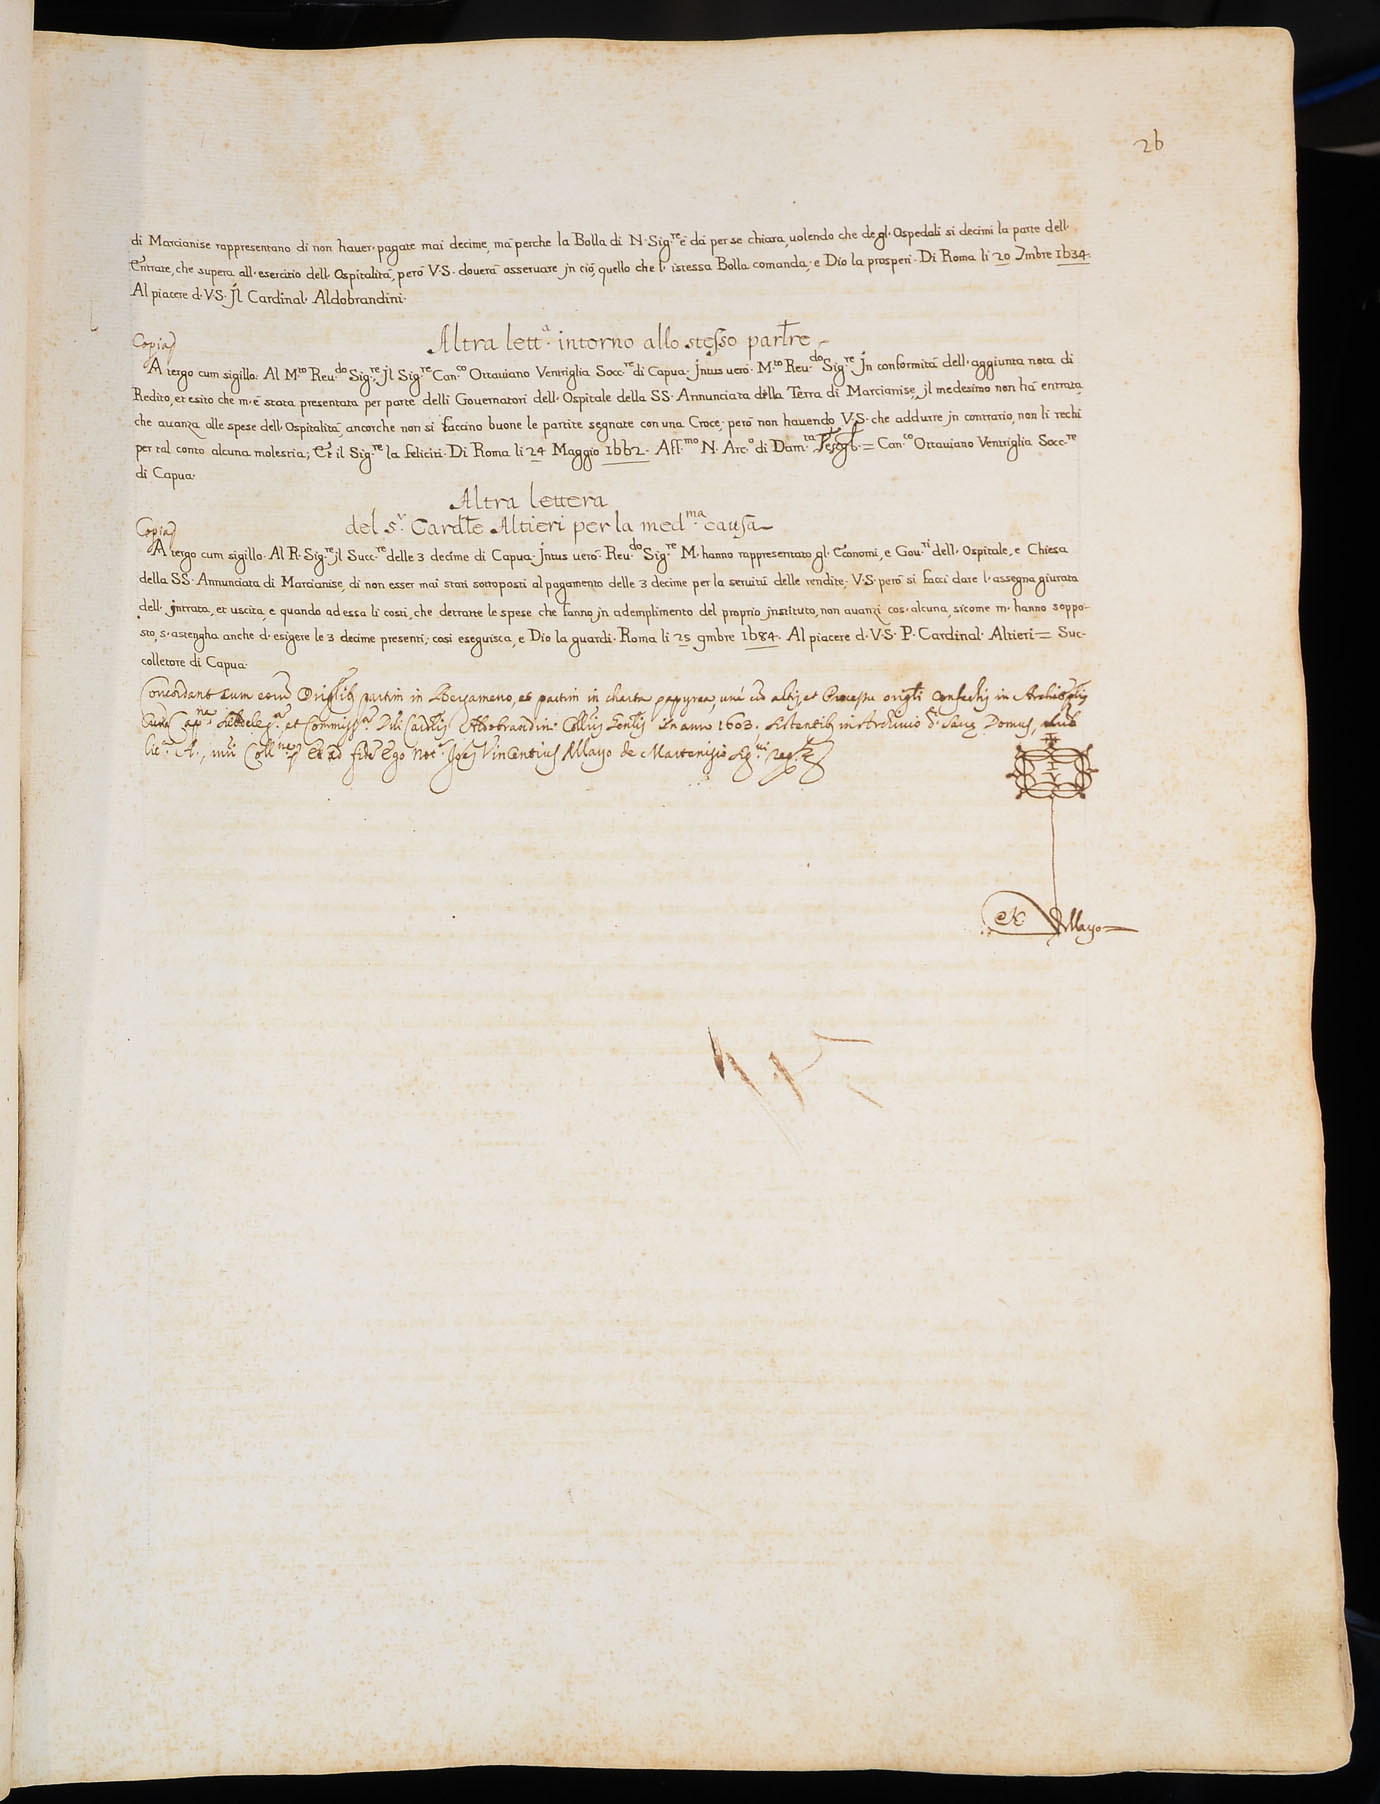 26
di Marcianise rappresentano di non hauer· pagate mai decime, mà perche la Bolla di N· Sig.re è dà per se chiara, uolendo che de gl· Ospedali si decimi la parte dell·
Entrate, che supera all· esercitio dell· Ospitalità, però V·S· douerà osseruare jn ciò, quello che l· istessa Bolla comanda; e Dio la prosperi· Di Roma li 20 Jmbre 1634·
Al piacere d·V·S· Jl Cardinal· Aldobrandini·
Altra lett.a intorno allo stesso partre
Copia
A tergo cum sigillo: Al M.to Reu.do Sig.re; jl Sig.re Can.co Ottauiano Ventriglia Socc.re di Capua· Jntus uerò· M.to Reu.do Sig.re Jn conformità dell· aggiunta nota di
Redito, et esito che m·è stata presentata per parte delli Gouernatori dell· Ospitale della SS· Annunciata della Terra di Marcianise, jl medesimo non hà entrata,
che auanza alle spese dell· Ospitalità, ancorche non si faccino buone le partite segnate con una Croce; però non hauendo V·S· che addurre jn contrario, non li rechi
per tal conto alcuna molestia; Et il Sig.re la feliciti· Di Roma li 24 Maggio 1662· Aff.mo N· Arc.o di Dam.ta = Can.co Ottauiano Ventriglia Socc.re
di Capua·
Altra lettera
del S.r Cardle Altieri per la med.ma causa
Copia
A tergo cum sigillo· Al R· Sig.re jl Succ.re delle 3 decime di Capua· Jntus uerò· Reu.do Sig.re M· hanno rappresentato gl· Economi, e Gou.ri dell· Ospitale, e Chiesa
della SS· Annunciata di Marcianise, di non esser mai stati sottoposti al pagamento delle 3 decime per la seruitù delle rendite; V·S· però si facci dare l· assegna giurata
dell· jntrata, et uscita, e quando ad essa li costi, che detratte le spese che fanno jn ademplimento del proprio jnstituto, non auanzi cos· alcuna, sicome m· hanno soppo-
sto, s· astengha anche d· esigere le 3 decime presenti; cosi eseguisca, e Dio la guardi· Roma li 25 9mbre 1684· Al piacere d·V·S· P· Cardinal· Altieri = Suc-
colletore di Capua·
Concordant cum partim in Pergameno, et partim in charta papyrea, et Processu
et Aldobrandini in anno 1603·
Et ad fidem Ego Not.r Vincentius Mayo de
Mayo